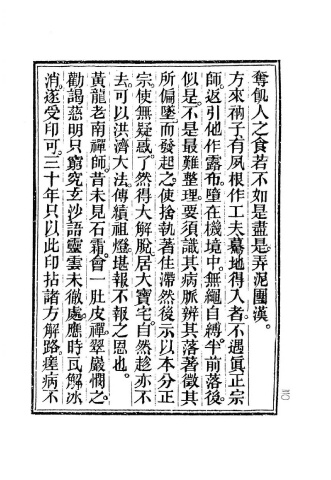 奪飢人之食若不如是盡是弄泥團漢。
方來衲子有夙根作工夫驀地得入者不遇眞正宗
師返引他作露布墮在機境中無繩自縛半前落後
似是不是最難整理要須識其病脈辨其落著徵其
所偏墜而發起之使捨執著住滯然後示以本分正
宗使無疑惑了然得大解脫居大寶宅自然趁亦不
去可以洪濟大法傳續祖燈堪報不報之恩也。
黃龍老南禪師昔未見石霜會一肚皮禪翠巖憫之。
勸謁慈明只窮究玄沙語靈雲未徹處應時瓦解冰
消遂受印可三十年只以此印拈諸方解路瘥病不